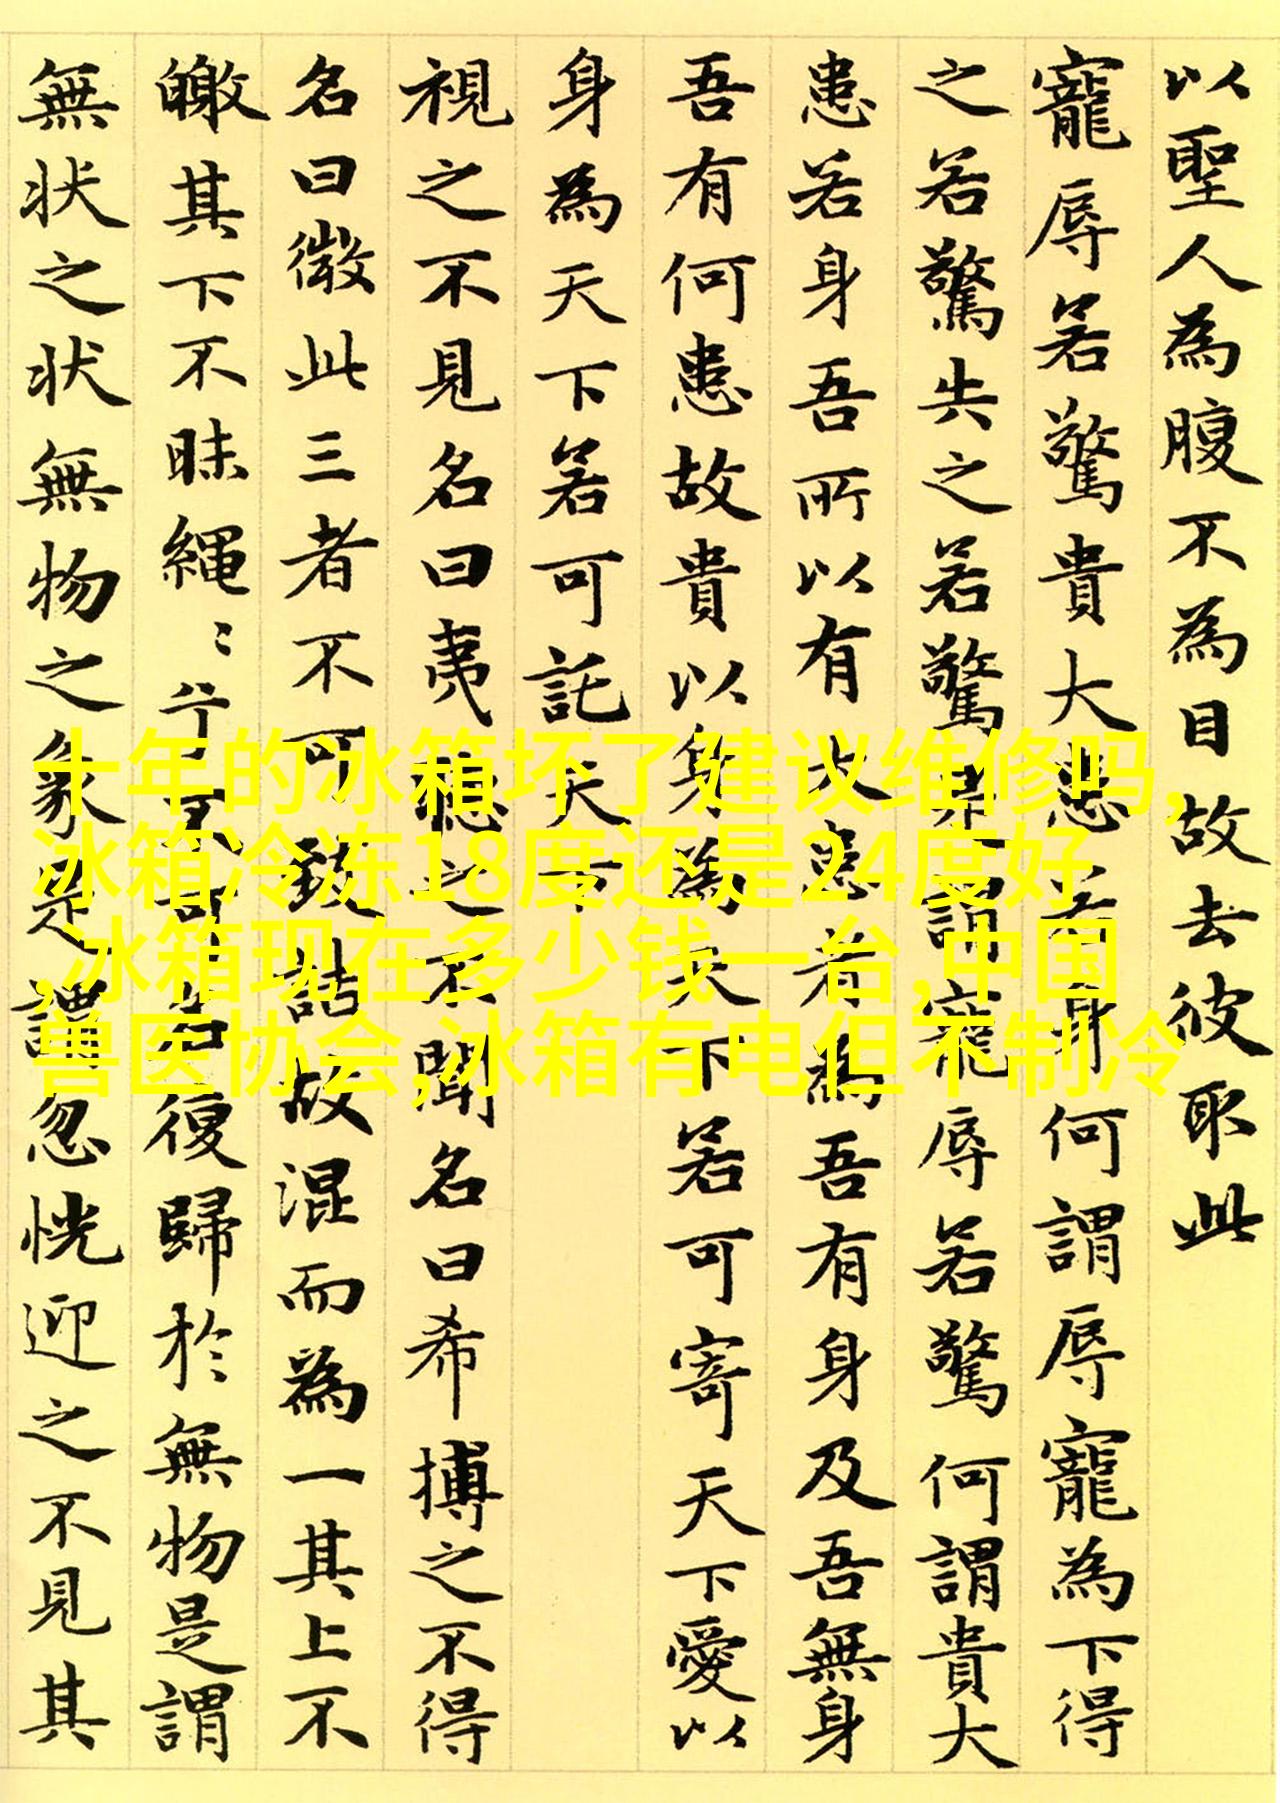 以聖人為腹不為目故去彼取此
寵辱若驚貴大患若身何謂辱寵為下得
之若驚失之若驚是謂寵辱若驚何謂貴大
患若身吾所以有大患者為吾有身及吾無身
吾有何患故貴以身為天下若可寄天下愛以
身為天下若可託天下
視之不見名曰夷聽之不聞名曰希搏之不得
名曰微此三者不可致詰故混而為一其上不
皦其下不昧繩〻兮不可名復歸於無物是謂
無状之状無物之象是謂忽恍迎之不見其
十年的冰箱坏了建议维修吗,
冰箱冷冻18度还是24度好
,冰箱现在多少钱一台,中国
兽医协会,冰箱有电但不制冷